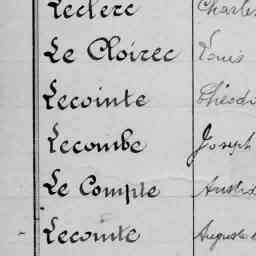 Leclerc Charles
Le Cloirec Louis
Lecointe
Lecombe Joseph
Le Compte
Lecomte Auguste